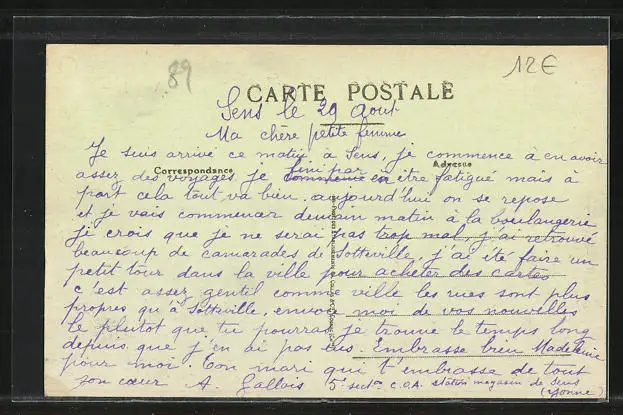 89
12€
CARTE POSTALE
Sens le 29 Aout
Ma chère petite femme
Je suis arrivé ce matin à Sens, je commence à en avoir
Correspondance
Adresse
assez des voyages je commence fini par en être fatigué mais à
part cela tout va bien. aujourd'hui on se repose
et je vais commencer demain matin à la boulangerie
je crois que je ne serai pas trop mal, j'ai retrouvé
beaucoup de camarades de Sotteville, j'ai été faire un
petit tour dans la ville pour acheter des cartes
c'est assez gentil comme ville les rues sont plus
propres qu'à Sotteville, envoi moi de vos nouvelles
le plutot que tu pourras je trouve le temps long
depuis que j'en ai pas eus. Embrasse bien Madeleine
pour moi. Ton mari qui t'embrasse de tout
son cœur A. Gallois 5e secton C.O.A. station magasin de Sens
(Yonne)